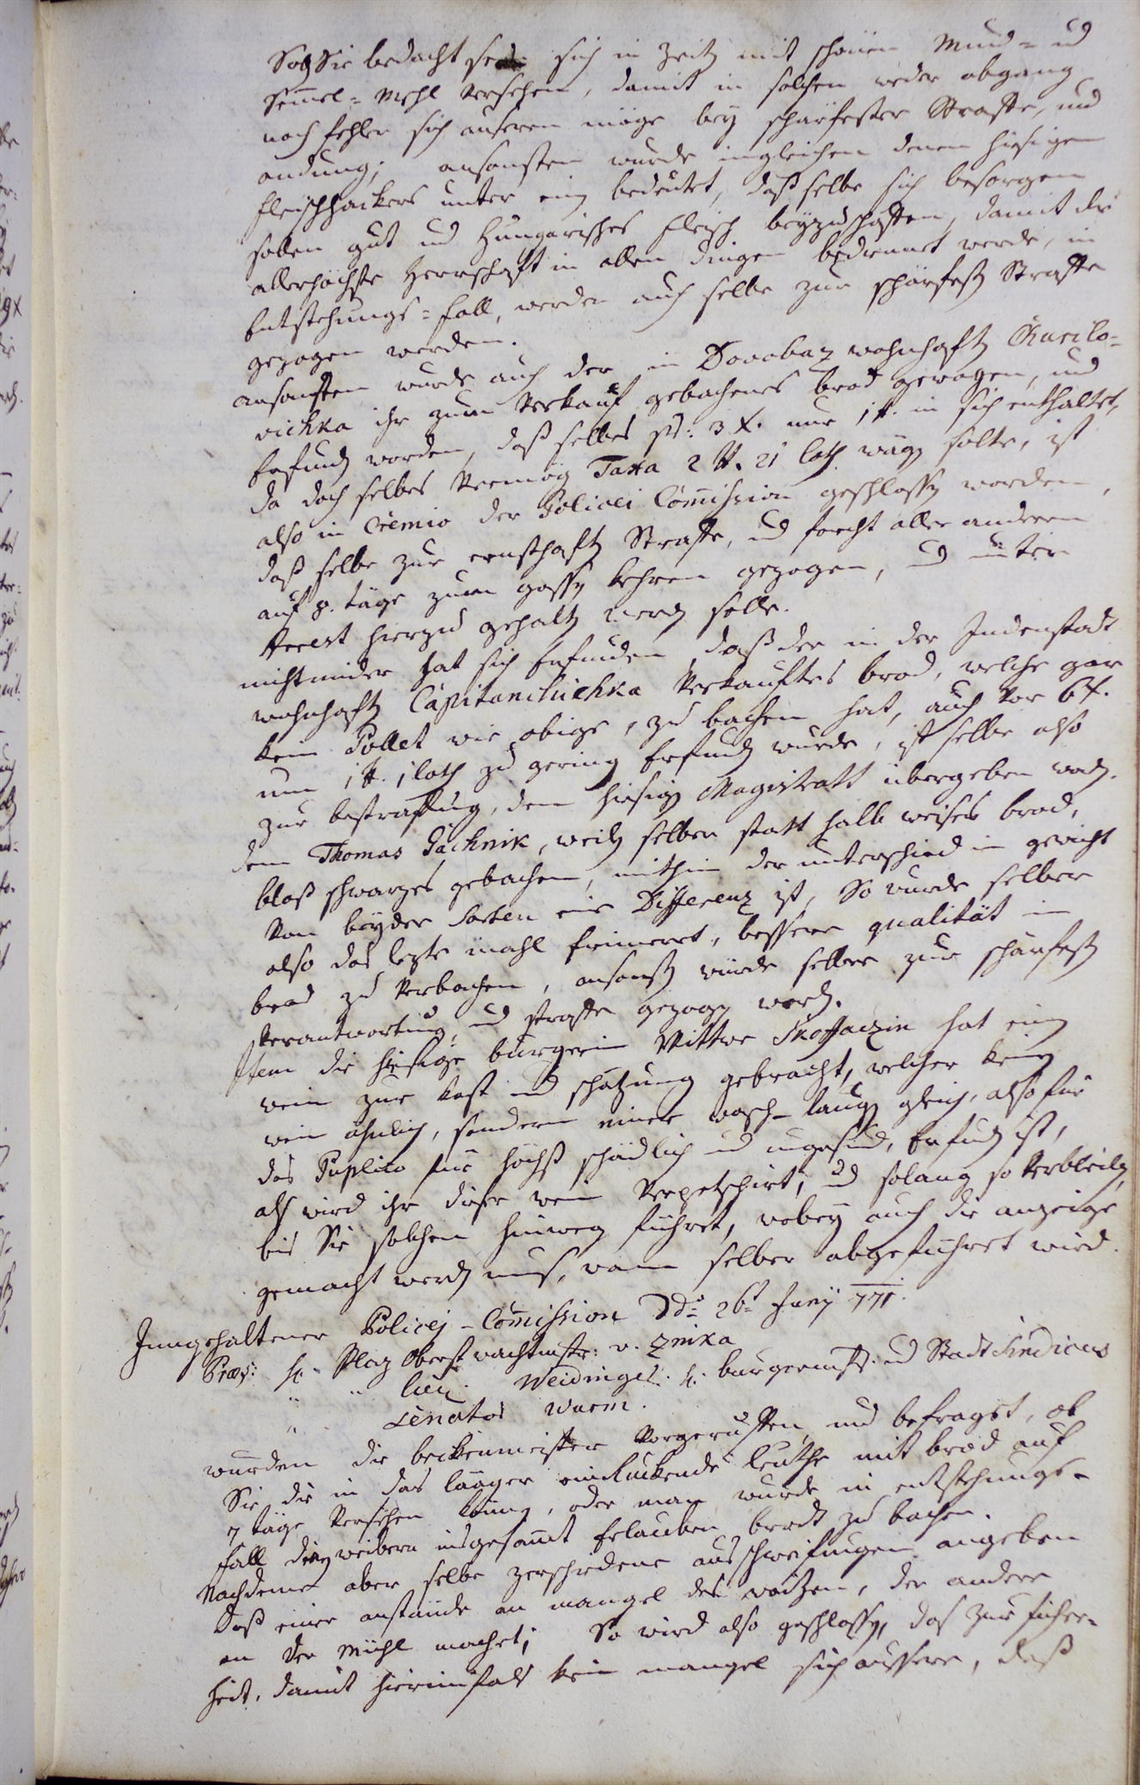 Soll Sie bedacht seyn sich in Zeiten mit schönen Mund- und
Semmel-Mehl versehen, damit in solchen weder abgang
noch fehler sich äuseren möge bey schärfester Straffe, und
andung; ansonsten wurde ingleichen denen hiesigen
fleischhackers unter ein bedeutet, daß selbe sich besorgen
sollen gut und Hungarisches fleisch beyzuschaffen, damit die
allerhöchste Herrschaft in allen dingen bedienet werde, in
Entstehungs-fall, werden auch selbe zur schärfesten Straffe
gezogen werden.
ansonsten wurde auch der in Donobaz wohnhaften Churilo-
vichka ihr zum Verkauf gebachenes brod gewogen, und
befunden worden, daß selbes pr: 3 X. nur 1 ℔. in sich enthaltet,
da doch selbes vermög Taxa 2 ℔. 21 loth wägen solte, ist
also in Gremio der Policei Commission geschlossen worden,
daß selbe zur ernsthaften Straffe, und forcht aller anderen
auf 8. täge zum gassen kehren gezogen, und unter
Arrest hierzu gehalten werden solle.
nicht minder hat sich befunden, daß der in der Indenstadt
wohnhaften Capitanchichka verkauftes brod, welche gar
kein Pollet wie obige, zu bachen hat, auch vor 6 X.
um 1 ℔. 1 loth zu gering befunden wurde, ist selbe also
zur bestraffung, dem hiesigen Magistratt übergeben worden.
dem Thomas Jachnik, weilen selber statt halb weises brod,
bloß schwarzes gebachen, mithin der unterschied in gewicht
von beyder Sorten eine Differenz ist, So wurde selber
also das lezte mahl erinneret, bessere qualität in
brod zu verbachen, ansonsten würde selber zur schärfesten
Verantwortung, und straffe gezogen werden.
Item die hiesige burgerin Wittwe Skoffaczin hat einen
wein zur kost und schätzung gebracht, welcher keinem
wein ähnlich, sondern einer wasch-laugen gleich, also für
das Puplico für höchst schädlich und ungesund, befunden ist,
als wird ihr dieser wein verpetschirt, und solang so verbleiben,
bis Sie solchen hinweg führet, wobey auch die anzeige
gemacht werden mus, wann selber abgeführet wird.
Inngehaltener Policej-Commission Ddo 26t Junij 771.
Præs: H. Plaz Oberstwachtmstr: v. Znika
" " lieut. Weidinger. H. burgermst. und Stadt Sindicus
" Senator Wurm.
wurden die beckenmeister vorgeruffen, und befraget, ob
Sie die in das lääger einruckende leuthe mit brod auf
7 täge versehen können, oder man wurde in entstehungs-
fall denen weibern insgesammt erlauben brodt zu bachen.
Nachdeme aber selbe zerschiedene ausschweifungen angeben
daß einer anstände an mangel des waitzen, der andere
an der Mühl machet; So wird also geschlossen, das zur sicher-
heit, damit hierinfals kein mangel sich äussere, daß